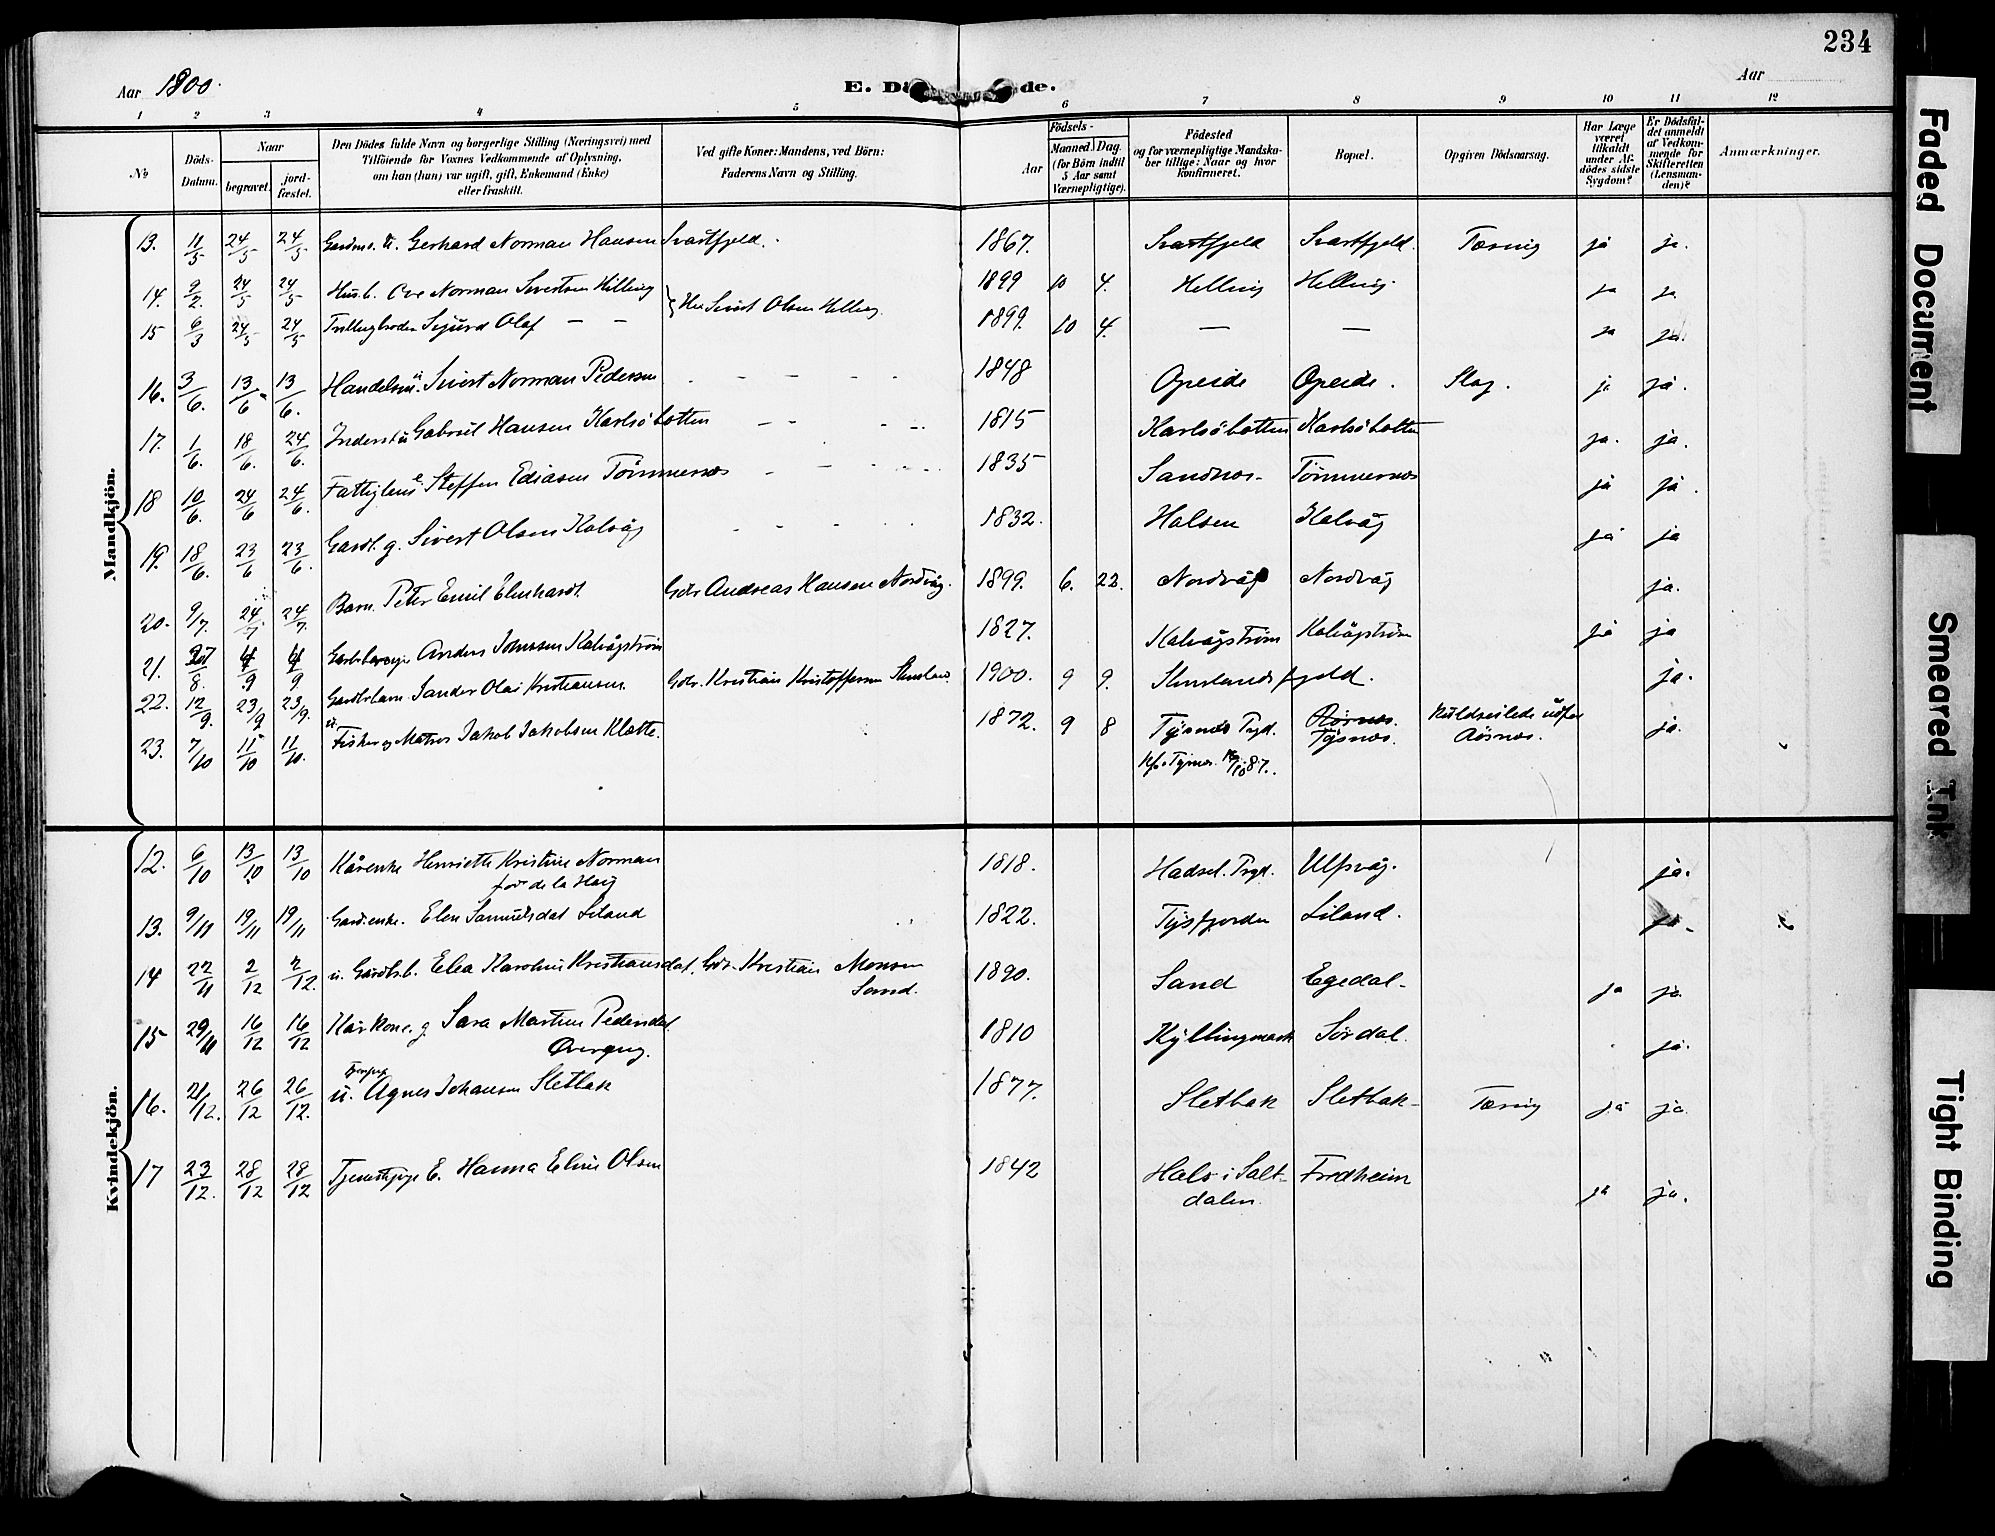 234
Aar 1900.
E. Dö de.
Aar
1 2 3 4 5 6 7 8 9 10 11 12
No
Döds-Datum.
Naar
begravet.
jord-fæstet.
Den Dödes fulde Navn og borgerlige Stilling (Næringsvei) med
Tilföiende for Voxnes Vedkommende af Oplysning,
om han (hun) var ugift, gift, Enkemand (Enke)
eller fraskilt.
Ved gifte Koner: Mandens, ved Börn:
Faderens Navn og Stilling.
Födsels-
Aar
Maaned Dag
(for Börn indtil
5 Aar samt
Værnepligtige).
Födested
og for værnepligtige Mandska-
ber tillige: Naar og hvor
konfirmeret.
Bopæl.
Opgiven Dödsaarsag.
Har Læge
været
tilkaldt
under Af-
dödes sidste
Sygdom?
Er Dödsfal-
det anmeldt
af Vedkom-
mende for
Skifteretten
(Lensman-
den)?
Anmærkninger.
Mandkjön.
13. 11/5 24/5 24/5 Gerhard Norman Hansen Svartfjeld. 1867. Svartfjeld Svartfjeld. Tæring ja ja.
14. 9/2 24/5 24/5 Ove Norman Sivertsen Helling Sivert Olsen Helling 1899 10 4. Helling Helling. ja ja
15 6/3 24/5 24/5 Tvillingbroden Sigurd Olaf — — 1899. 10 4. — — ja ja.
16. 3/6. 13/6 13/6. Handelsm. Sivert Norman Pedersen 1848 Opeide Opeide. Slag. ja ja.
17. 1/6. 18/6. 24/6. Inderst Gabriel Hansen Karlsöbotten 1815 Karlsöbotten Karlsöbotten ja. ja.
18 10/6. 24/6 24/6. Fattiglem Steffen Ediasen Tömmernes 1835 Sandnes- Tömmernes ja ja.
19. 18/6. 23/6 23/6. Gaardb. g. Sivert Olsen Kalvåg 1832. Halsen Kalvåg ja ja
20. 9/7. 24/7. 24/7. Barn. Peter Emil Elenhardt Gdr. Andreas Hansen Nordvåg. 1899. 6. 22. Nordvåg Nordvåg ja.
21. 27/8. 4/9 4/9 Anders Johnsen Kalvågström 1827. Kalvågström Kalvågström ja ja
22. 12/9. 23/9 23/9. Sander Olai Kristiansen. Gdr. Kristian Kristoffersen Stensland. 1900. 9 9. Stenslandsfjeld. ja.
23. 7/10 11/10 11/10. Fisker og Matros Jakob Jakobsen Klotte. 1872. 9 8 Tysnes Prgd. Rörnes. Tysnes. Kuldseilede udfor Rörnes. ja.
Kf. i Tysnes. /10 87.
Kvindekjön.
12. 6/10 13/10 13/10 Kårenke Henriette Kristine Norman 1818. Hadsel. Prgd. Ulfsvåg. ja.
för de la Haig
13. 9/11 19/11 19/11 Gard.enke. Elen Samuelsdat Liland 1822. Tysfjorden Liland. ja.
14 22/11 2/12 2/12. u. Gårdb.b. Elea Karoline Kristiansdat. Gdr. Kristian Monsen 1890. Sand Egedal. ja ja
Sand.
15 29/11 16/12 16/12 Kårkone. g. Sara Martine Pedersdat. 1810 Kyllingmark Sördal. ja.
Övergug.
16. 21/12. 26/12 26/12. u. Agnes Johansen Sletbak 1877. Sletbak Sletbak Tæring ja ja.
17 23/12. 28/12 28/12 Tjenestepige E. Hanna Eline Olsen 1842 Hals i Salt- Fredheim ja ja.
dalen.
Faded Document
Smeared Ink
Tight Binding